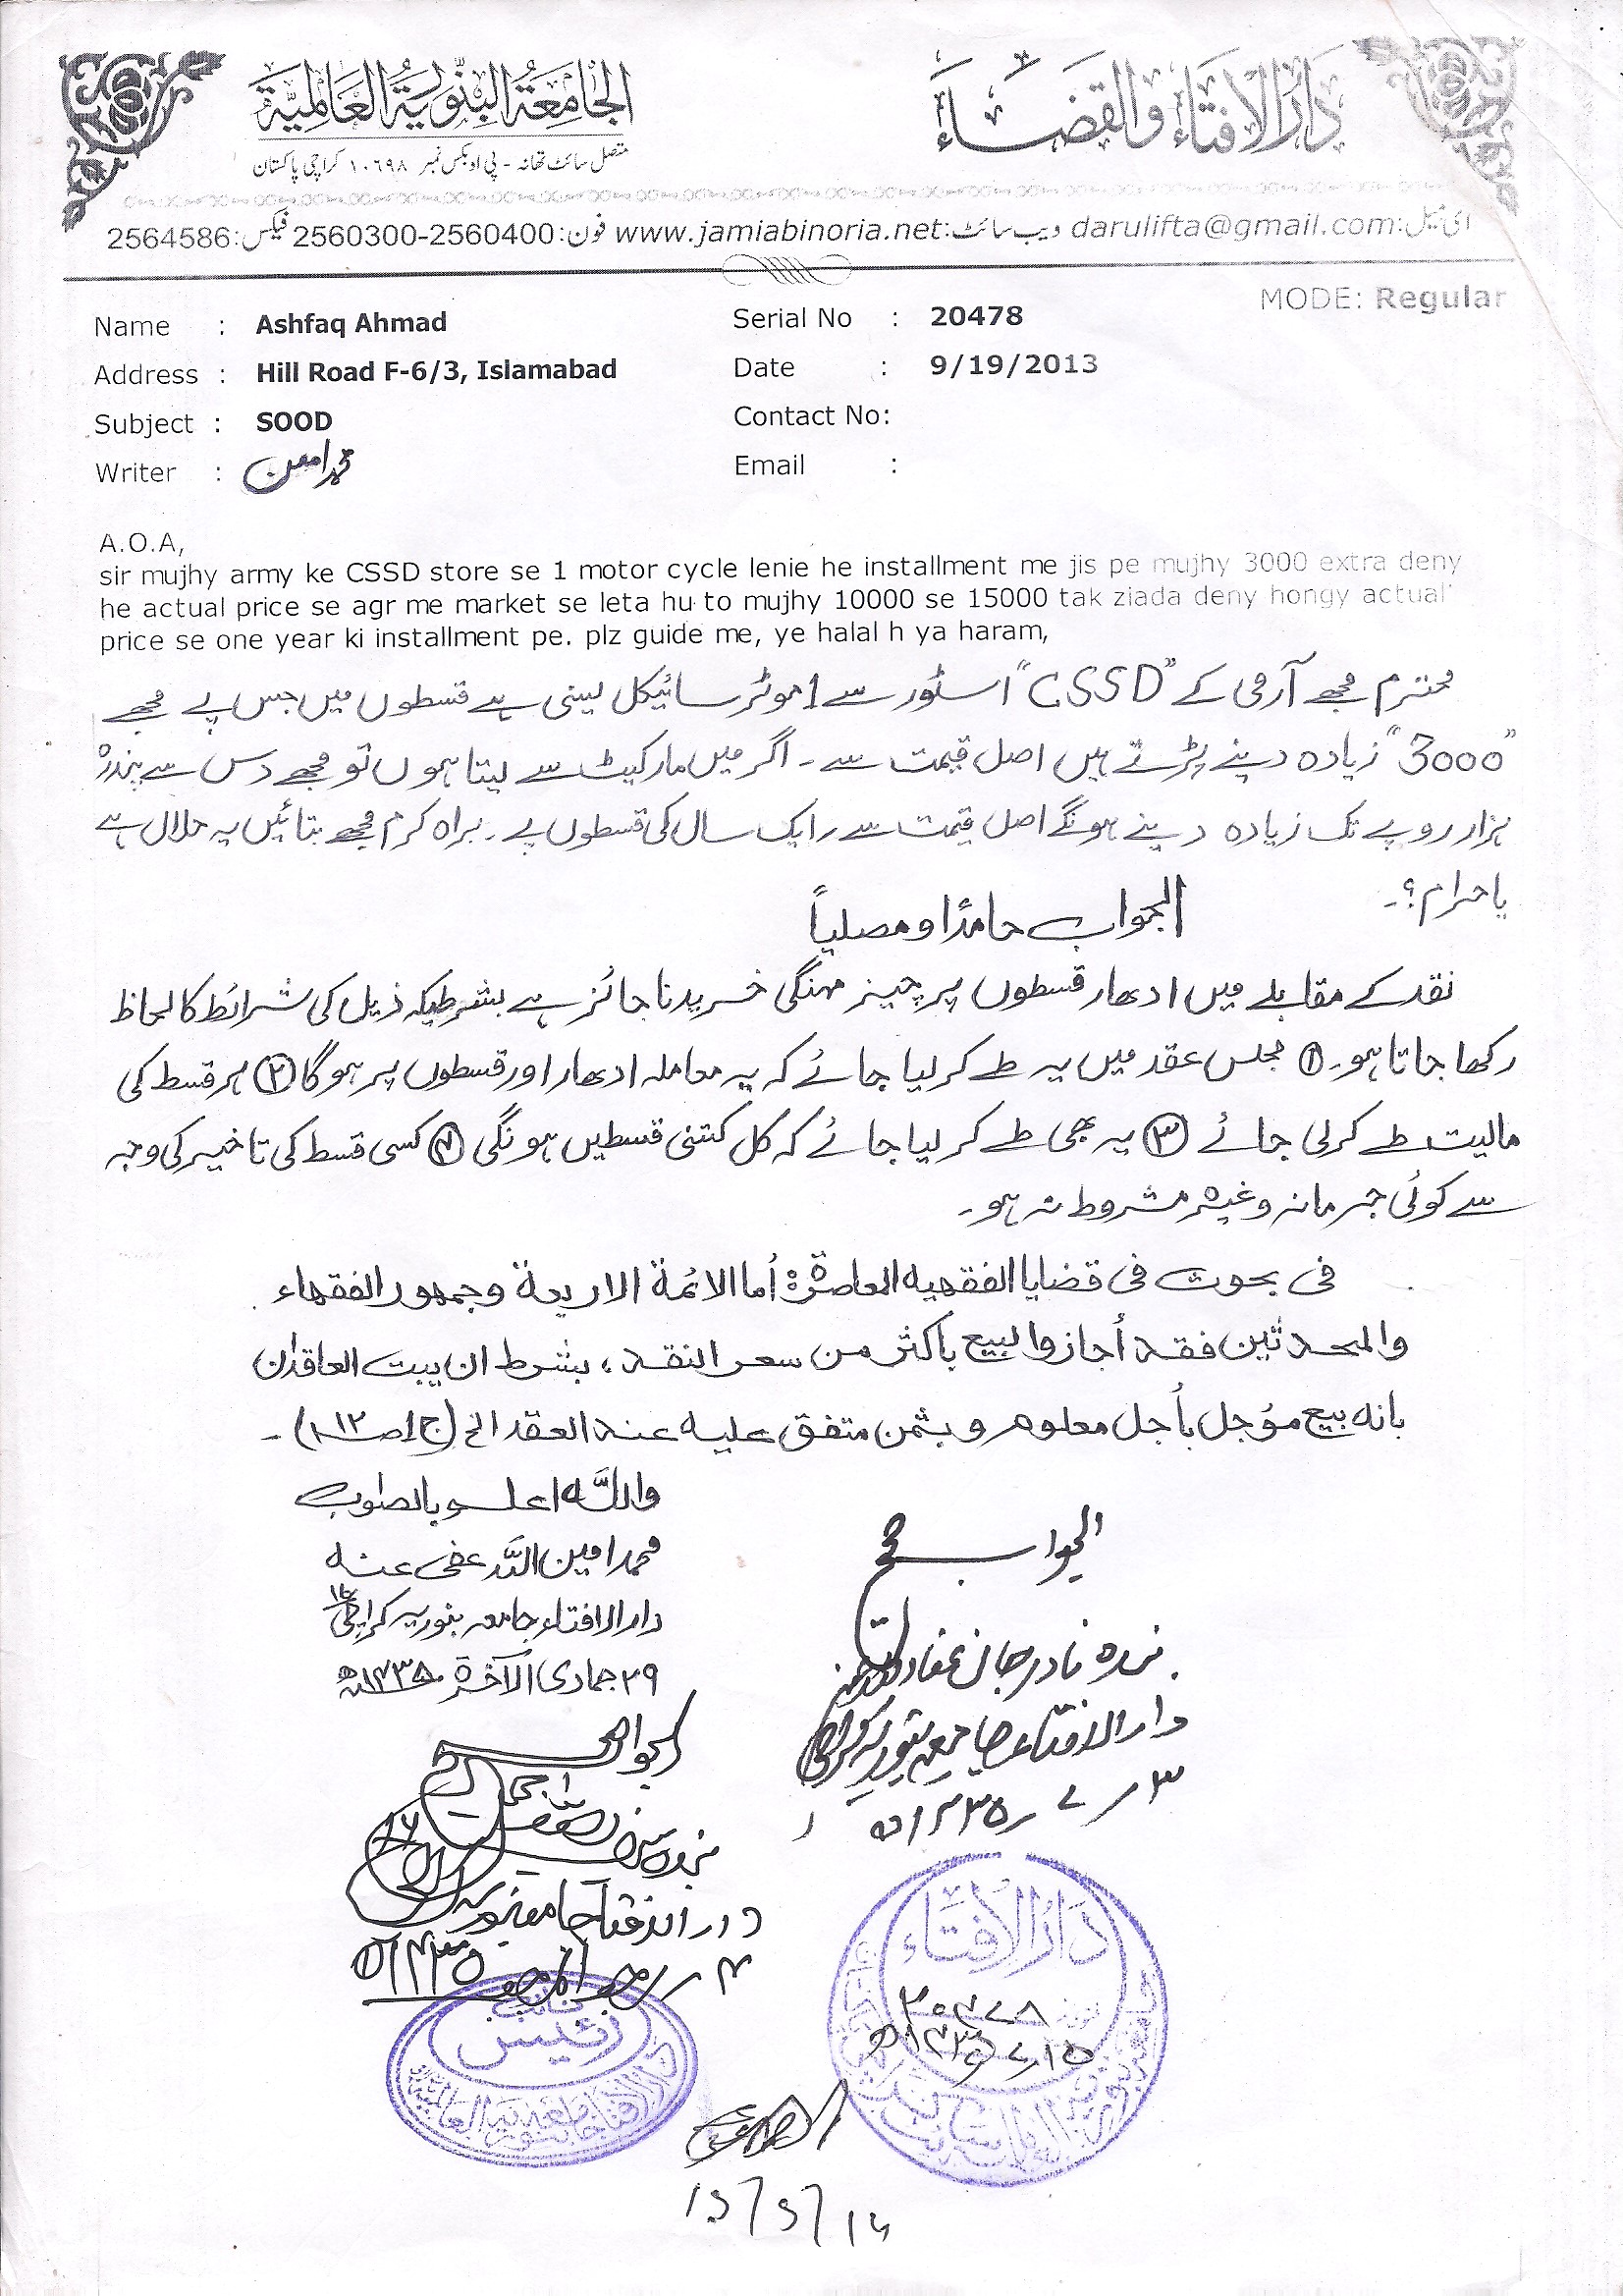 دَارُالاِفتَاء وَالقَضَاء
الجَامِعَةُ البِنّورِيَّةُ العَالَمِيَّة
متصل سائٹ تھانہ - پی او بکس نمبر ۱۰۶۹۸ کراچی پاکستان
ای میل:darulifta@gmail.com ویب سائٹ:www.jamiabinoria.net فون:2560300-2560400 فیکس:2564586
MODE: Regular
Name : Ashfaq Ahmad Serial No : 20478
Address : Hill Road F-6/3, Islamabad Date : 9/19/2013
Subject : SOOD Contact No:
Writer : محمد امین Email :
A.O.A,
sir mujhy army ke CSSD store se 1 motor cycle lenie he installment me jis pe mujhy 3000 extra deny
he actual price se agr me market se leta hu to mujhy 10000 se 15000 tak ziada deny hongy actual
price se one year ki installment pe. plz guide me, ye halal h ya haram,
محترم مجھے آرمی کے "CSSD" اسٹور سے 1 موٹر سائیکل لینی ہے قسطوں میں جس پے مجھے
"3000" زیادہ دینے پڑتے ہیں اصل قیمت سے۔ اگر میں مارکیٹ سے لیتا ہوں تو مجھے دس سے پندرہ
ہزار روپے تک زیادہ دینے ہونگے اصل قیمت سے، ایک سال کی قسطوں پے۔ براہ کرم مجھے بتائیں یہ حلال ہے
یا حرام؟۔
الجواب حامدًا ومصلیاً
نقد کے مقابلے میں ادھار قسطوں پر چیز مہنگی خریدنا جائز ہے بشرطیکہ ذیل کی شرائط کا لحاظ
رکھا جاتا ہو۔ ① مجلس عقد میں یہ طے کر لیا جائے کہ یہ معاملہ ادھار اور قسطوں پر ہوگا ② ہر قسط کی
مالیت طے کرلی جائے ③ یہ بھی طے کر لیا جائے کہ کل کتنی قسطیں ہونگی ④ کسی قسط کی تاخیر کی وجہ
سے کوئی جرمانہ وغیرہ مشروط نہ ہو۔
فی بحوث فی قضایا الفقھیه المعاصرة: أما الائمة الاربعة وجمهور الفقهاء
والمحدثین فقد أجازوا البیع بأکثر من سعر النقد، بشرط ان یبت العاقدان
بانه بیع مؤجل بأجل معلوم وبثمن متفق علیه عند العقد الخ (ج۱ ص۱۲)۔
واللّٰہ اعلم بالصواب
محمد امین اللّٰہ عفی عنہ
دارالافتاء جامعہ بنوریہ کراچی
۲۹ جمادی الآخرة ۱۴۳۵ھ
الجواب صحیح
بندہ نادر جان
دارالافتاء جامعہ بنوریہ کراچی
۳ / ۷ / ۱۴۳۵ھ
الجواب صحیح
دارالافتاء جامعہ بنوریہ
۴ رجب المرجب ۱۴۳۵ھ
دَارُالاِفتَاء
۲۰۴۷۸
نائب
رئیس